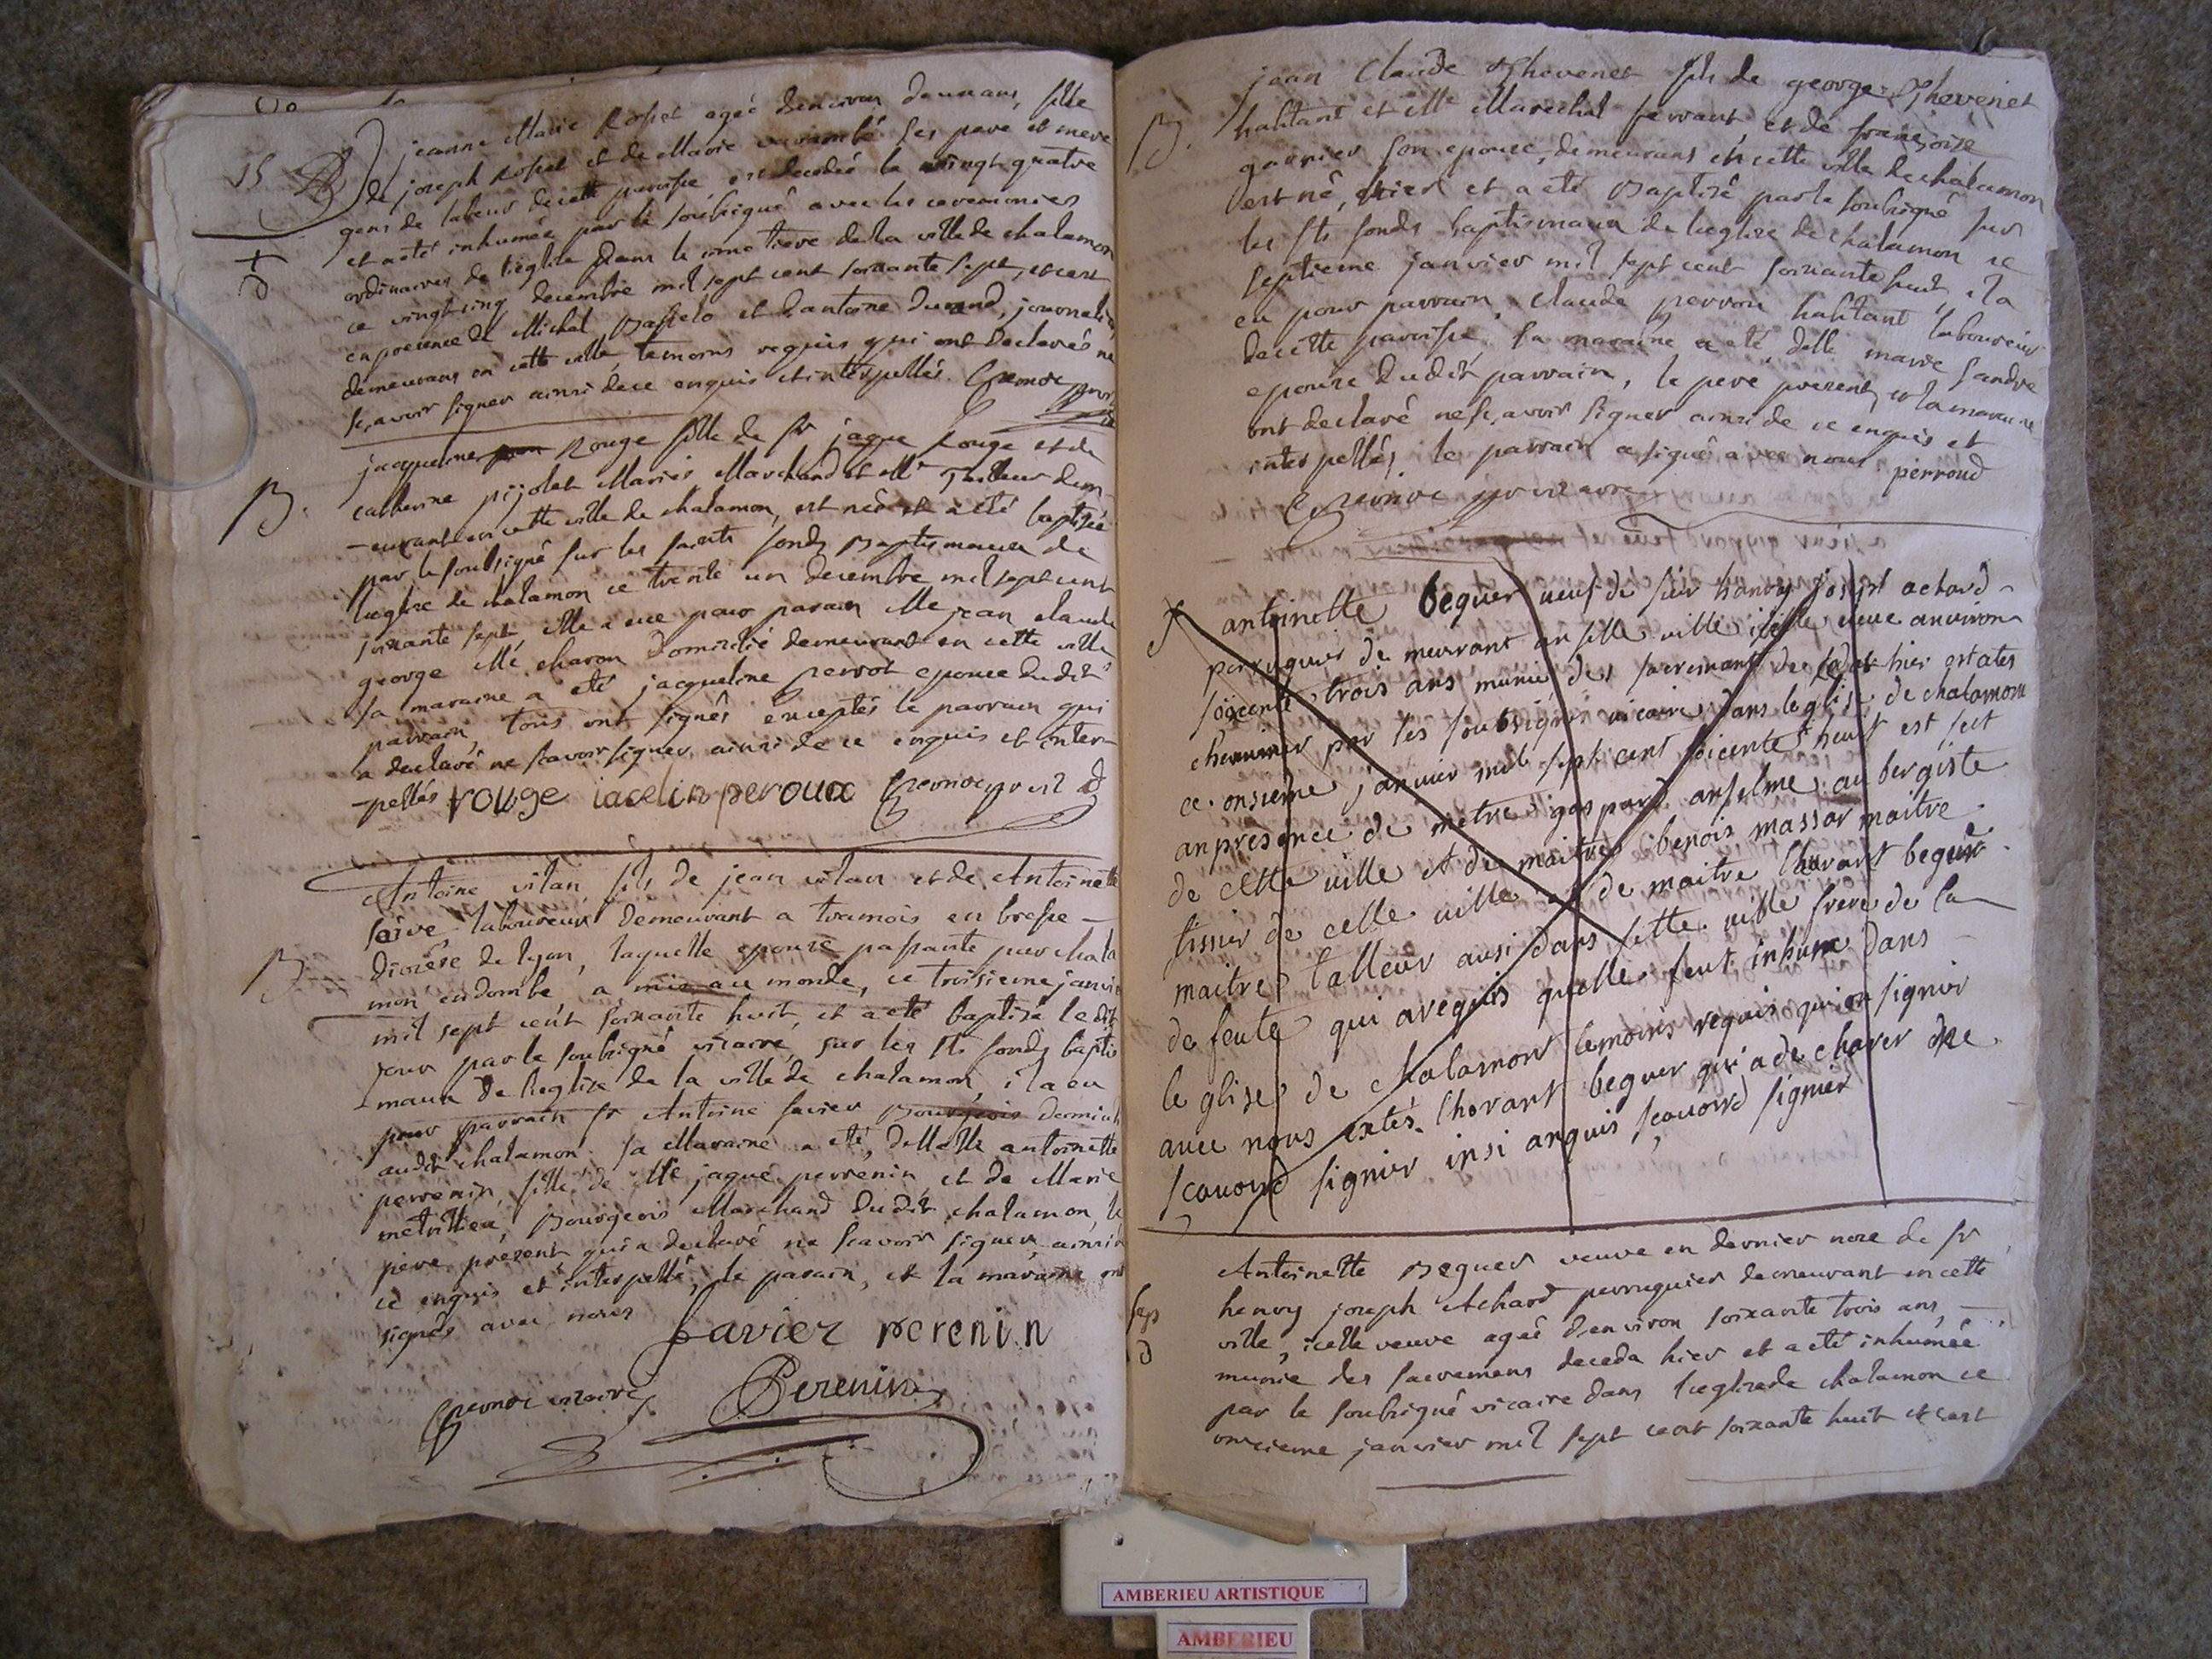 15
jeanne Marie Rosset agée denviron deux ans, fille
de joseph Rosset et de Marie ses pere et mere
gens de labeur de cette paroisse est decedée le vingt quatre
et a eté inhumée par le soubsigné avec les ceremonies
ordinaires de leglise dans le cimetiere de la ville de chalamon
ce vingt cinq decembre mil sept cent soixante sept, et cest
en presence de Michel et dantoine durand, journaliers
demeurans en cette ville, temoins requis qui ont declarés ne
scavoir signer ainsi de ce enquis et interpellés.
jacqueline Rouge fille de sr jaque Rouge et de
B.
catherine pijolet Mariés Marchand et Me Tailleur dem-
-eurant en cette ville de chalamon, est née et a été baptisée
par le soubsigné sur les saints fonds Baptismaux de
leglise de chalamon ce trente un decembre mil sept cent
soixante sept, elle a eue pour parain Me jean claude
george Me charon domicilié demeurant en cette ville
sa maraine a eté jacqueline perrot epouse dudit
parrain, tous ont signés exceptés le parrain qui
a declaré ne scavoir signer ainsi de ce enquis et inter-
-pellés rouge iacelin peroux
Antoine vilan fils de jean vilan et de Antoinette
laboureur demeurant a tramois en bresse -
B
diocèse de lyon, laquelle epouse passante par chala
mon en dombe, a mis au monde, ce troisieme janvier
mil sept cent soixante huit, et a eté baptisé le dit
jour par le soubsigné vicaire, sur les sts fonds baptis
-maux de leglise de la ville de chalamon, il a eu
pour parrain sr Antoine savier Bourgeois
audit chalamon. sa Maraine a eté, delle antoinette
perrenin, fille de Me jaque perrenin, et de Marie
Bourgeois Marchand dudit chalamon, le
père présent qui a declaré ne scavoir signer, ainsi
ce enquis et interpellé, le parain, et la maraine ont
signés avec nous
Savier perenin
vicaire Perenin
jean Claude Thevenet fils de george Thevenet
B.
habitant et Me Marechal ferrant, et de françoise
garnier son epouse, demeurans en cette ville de chalamon
est né, hier et a eté Baptisé par le soubsigné sur
les sts fonds baptismaux de leglise de chalamon ce
septieme janvier mil sept cent soixante huit, il a
eu pour parrain, claude perrou habitant laboureur
de cette paroisse. sa maraine a eté, delle marie Sandre
epouse dudit parrain, le pere present, et la maraine
ont declaré ne scavoir signer ainsi de ce enquis et
interpellés. le parrain a signé avec nous perroud
vicaire
antoinette beguer
perruquier de meurant an sette ville icelle veue anviron
soixente trois ans munie des sacremants
par les soubsignés vicaire dans leglise de chalamon
ce onsieme janvier mil sept cent soicente heuit est fect
an presence de metre gaspard anselme aubergiste
de cette ville et de maitre benois massar maitre
tissier de celle ville et de maitre lhorant beguer
maitre talleur ausi dans sette ville frere de la
defeute qui a requis quelle feut inhume dans
le glise de chalamont temoins requis qui on signier
avec nous lhorant beguer qui a de charer ne
scavoird signier insi anquis scavoird signier
Antoinette Beguer veuve en dernier noce de sr
henry joseph Achard perruquier demeurant en cette
ville, icelle veuve agée denviron soixante trois ans,
munie des sacremens deceda hier et a eté inhumée
par le soubsigné vicaire dans leglise de chalamon ce
onzieme janvier mil sept cent soixante huit et cest
AMBERIEU ARTISTIQUE
AMBERIEU